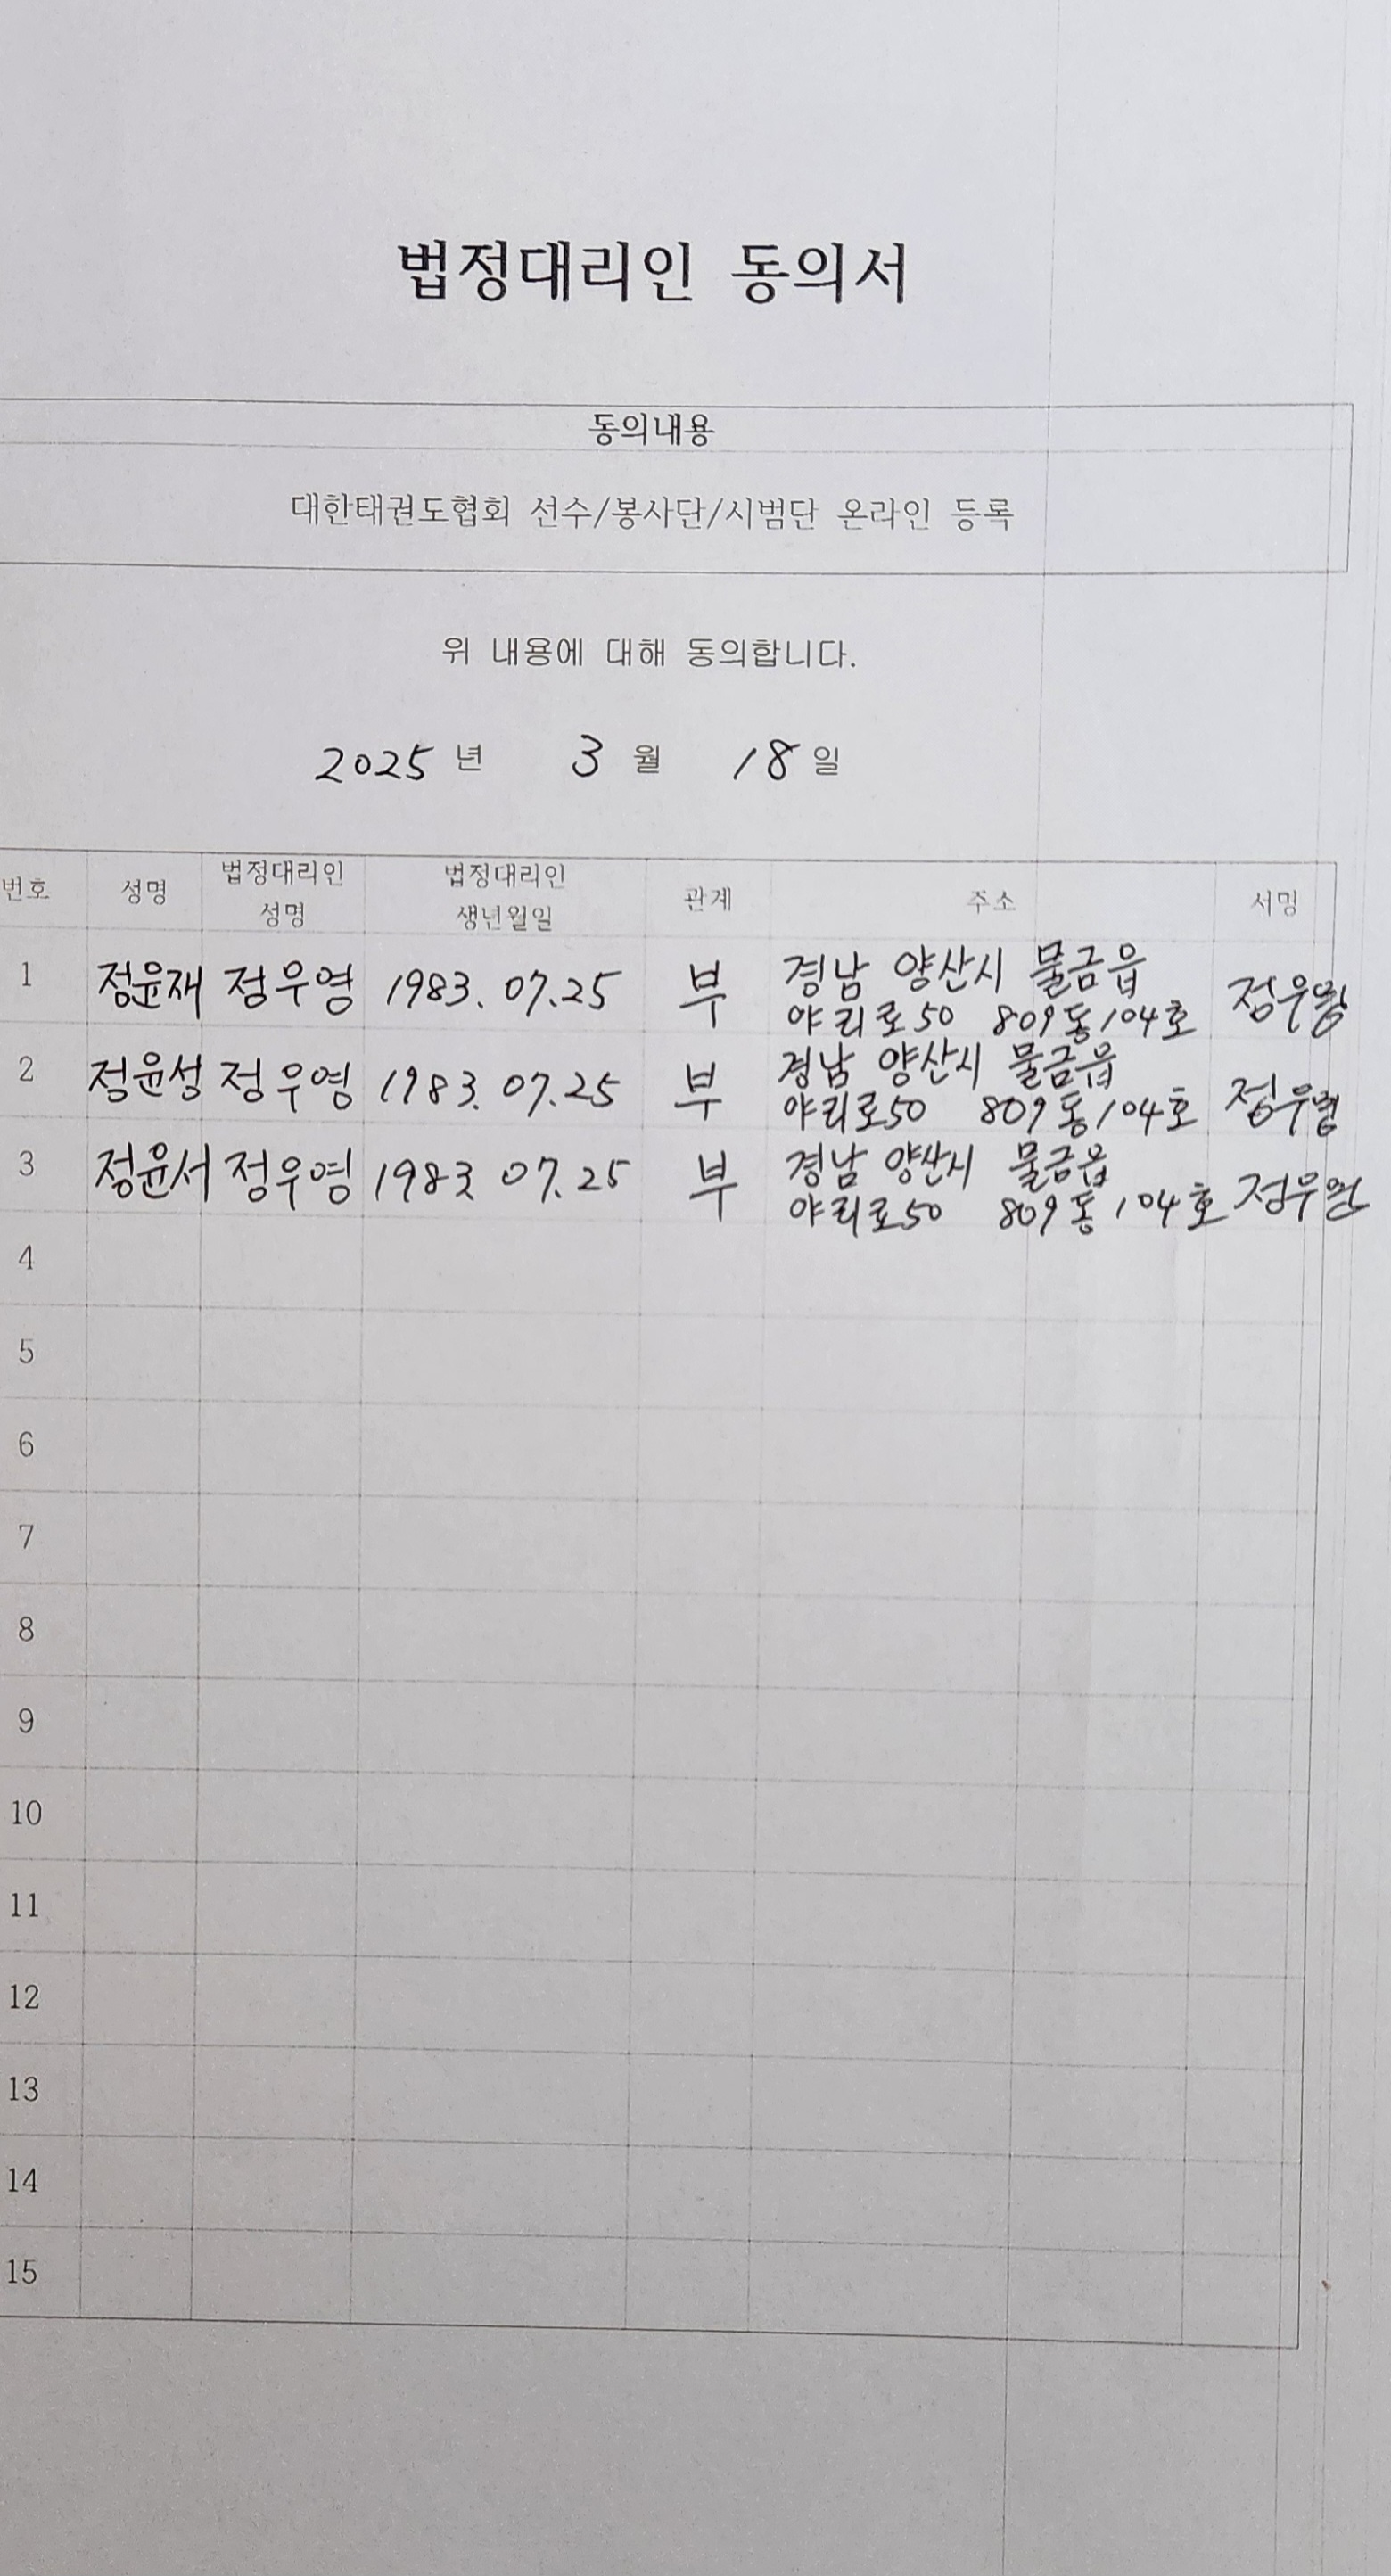 법정대리인 동의서
동의내용
대한태권도협회 선수/봉사단/시범단 온라인 등록
위 내용에 대해 동의합니다.
2025 년 3 월 18 일
번호 성명 법정대리인 성명 법정대리인 생년월일 관계 주소 서명
1 정윤재 정우영 1983.07.25 부 경남 양산시 물금읍 정우영
야리로50 809동104호
2 정윤성 정우영 1983.07.25 부 경남 양산시 물금읍 정우영
야리로50 809동104호
3 정윤서 정우영 1983 07.25 부 경남 양산시 물금읍 정우영
야리로50 809동104호
4
5
6
7
8
9
10
11
12
13
14
15